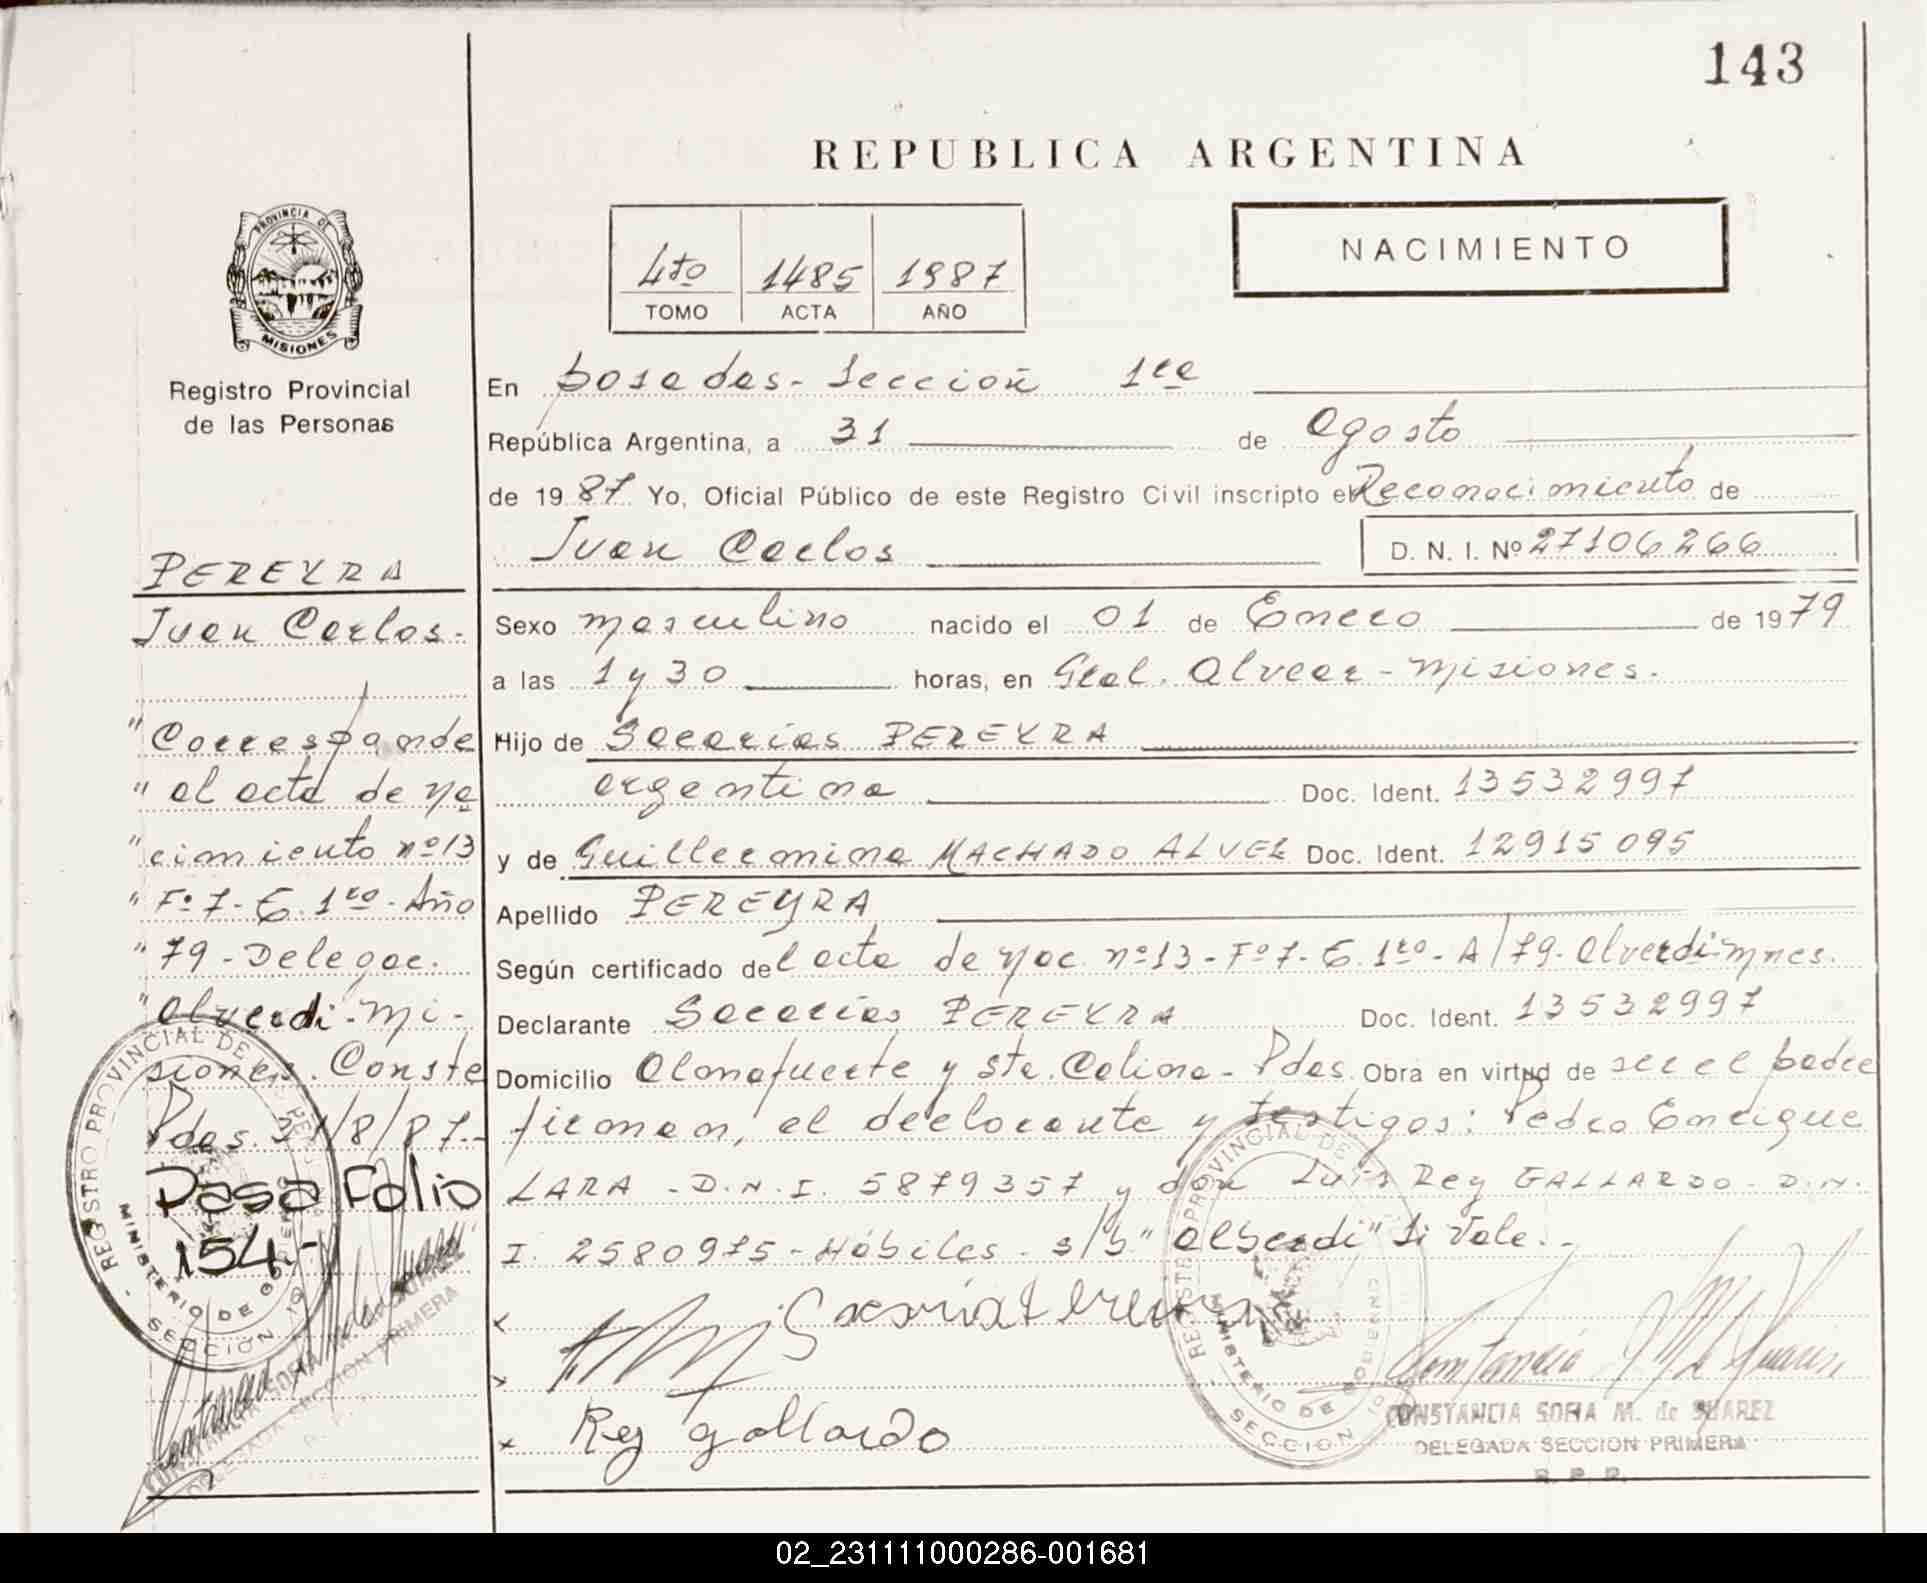 143
REPUBLICA ARGENTINA
PROVINCIA DE
MISIONES
Registro Provincial
de las Personas
4to 1485 1987
TOMO ACTA AÑO
NACIMIENTO
En Posadas - Sección 1ra
República Argentina, a 31 de Agosto
de 1987. Yo, Oficial Público de este Registro Civil inscripto el Reconocimiento de
Juan Carlos D. N. I. Nº 27106266
Sexo masculino nacido el 01 de Enero de 1979
a las 1 y 30 horas, en Gral. Alvear - Misiones.
Hijo de Sacarías PEREYRA
argentina Doc. Ident. 13532997
y de Guillermina MACHADO ALVEZ Doc. Ident. 12915095
Apellido PEREYRA
Según certificado del acta de nac. nº 13 - Fº 7 - T. 1ro - A/79 - Alverdi - Mnes.
Declarante Sacarías PEREYRA Doc. Ident. 13532997
Domicilio Almafuerte y Sta. Catina - Pdas. Obra en virtud de ser el padre
firman, el declarante y testigos: Pedro Enrique
LARA - D.N.I. 5879357 y don Luis Rey GALLARDO - D.N.
I. 2580975 - Hábiles - s/b "Alberdi" Si Vale. -
Rey gallardo
CONSTANCIA SOFIA M. de SUAREZ
DELEGADA SECCION PRIMERA
R. P. P.
REGISTRO PROVINCIAL DE
MINISTERIO DE GOBIERNO
SECCION 1º
PEREYRA
Juan Carlos -
"Corresponde
"al acta de na
"cimiento nº 13
"Fº 7 - T. 1ro - Año
"79 - Delegac.
"Alverdi - Mi -
siones. Conste
Pdas. 31/8/87 -
Pasa Folio
154 -
REGISTRO PROVINCIAL DE LAS PERSONAS
MINISTERIO DE GOBIERNO
SECCION 1º
DELEGADA SECCION PRIMERA
02_231111000286-001681